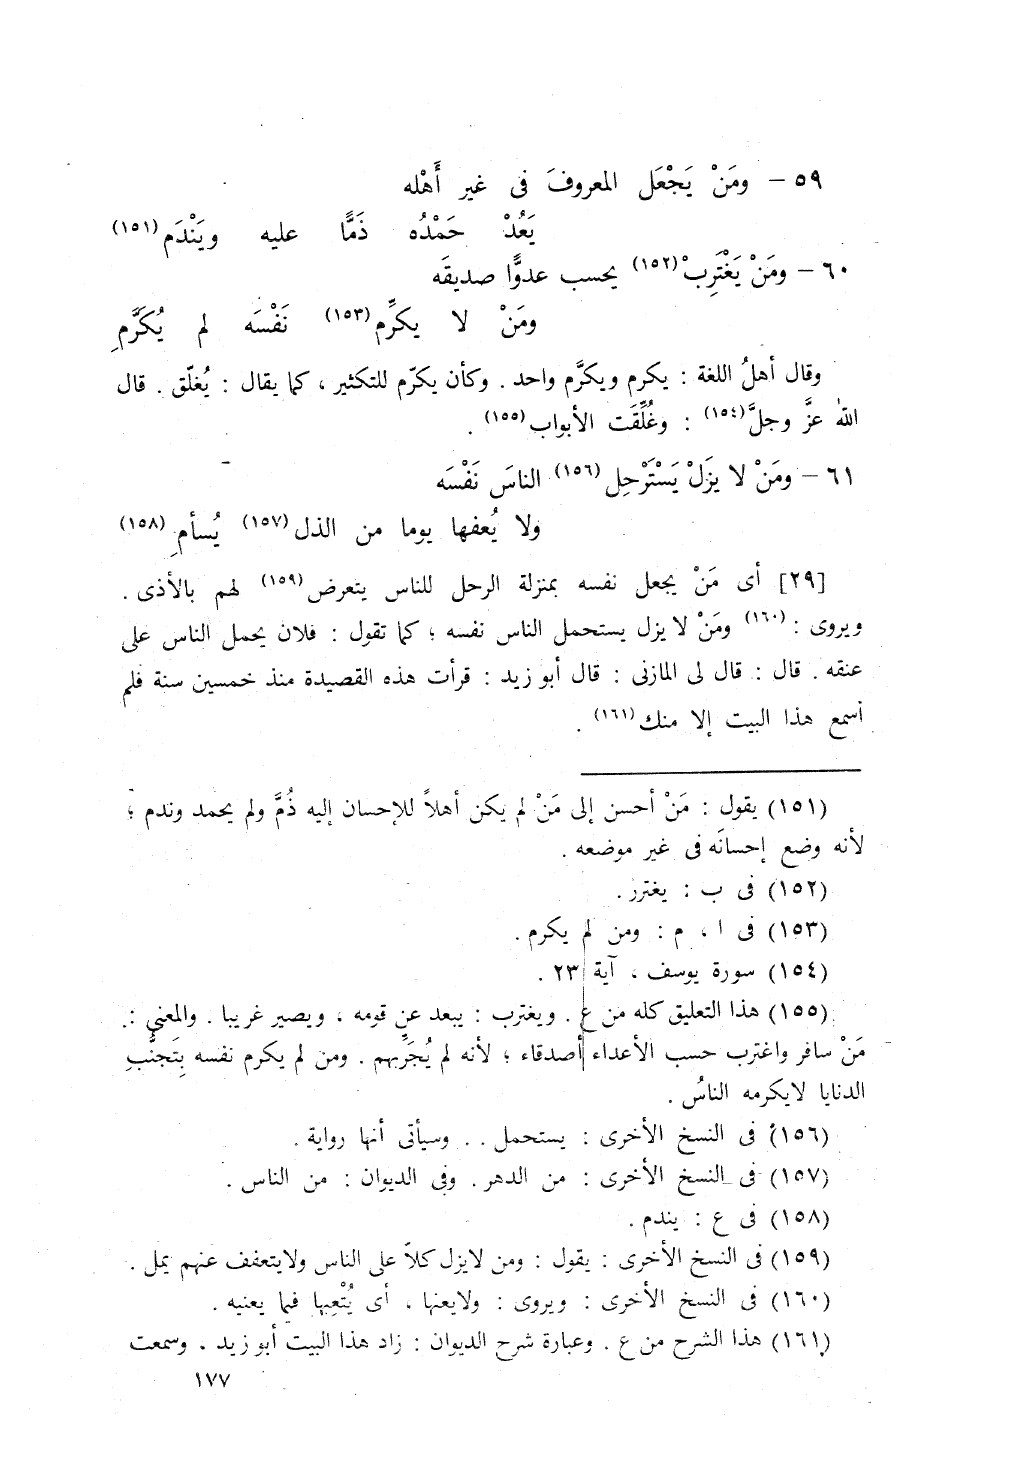 ٥٩ – ومَنْ يَجْعَل المعروفَ فى غير أَهْله
يَعُدْ حَمْدُه ذَمًّا عليه ويَنْدَم(١٥١)
٦٠ – ومَنْ يَغْتَرِبْ(١٥٢) يحسب عدوًّا صديقَه
ومَنْ لا يكرِّم(١٥٣) نَفْسَه لم يُكَرَّمِ
وقال أهلُ اللغة : يكرم ويكرَّم واحد . وكأن يكرّم للتكثير ، كما يقال : يُغلّق . قال
اللهُ عزَّ وجلَّ(١٥٤) : وغُلِّقَت الأبواب(١٥٥) .
٦١ – ومَنْ لا يزَلْ يَسْتَرْحِل(١٥٦) الناسَ نَفْسَه
ولا يُعفها يوما من الذل(١٥٧) يُسأمِ(١٥٨)
[٢٩] أى مَنْ يجعل نفسه بمنزلة الرحل للناس يتعرض(١٥٩) لهم بالأذى .
ويروى :(١٦٠) ومَنْ لا يزل يستحمل الناس نفسه ؛ كما تقول : فلان يحمل الناس على
عنقه . قال : قال لى المازنى : قال أبو زيد : قرأت هذه القصيدة منذ خمسين سنة فلم
أسمع هذا البيت إلا منك(١٦١) .
(١٥١) يقول : مَنْ أحسن إلى مَنْ لم يكن أهلاً للإحسان إليه ذُمَّ ولم يحمد وندم ؛
لأنه وضع إحسانَه فى غير موضعه .
(١٥٢) فى ب : يغترر .
(١٥٣) فى ا ، م : ومن لم يكرم .
(١٥٤) سورة يوسف ، آية ٢٣ .
(١٥٥) هذا التعليق كله من ع . ويغترب : يبعد عن قومه ، ويصير غريبا . والمعنى :
مَنْ سافر واغترب حسب الأعداء أصدقاء ؛ لأنه لم يُجَرِّبهم . ومن لم يكرم نفسه بِتَجنُّبِ
الدنايا لايكرمه الناسُ .
(١٥٦) فى النسخ الأخرى : يستحمل . . وسيأتى أنها رواية .
(١٥٧) فى النسخ الأخرى : من الدهر . وفى الديوان : من الناس .
(١٥٨) فى ع : يندم .
(١٥٩) فى النسخ الأخرى : يقول : ومن لايزل كلاً على الناس ولايتعفف عنهم يمل .
(١٦٠) فى النسخ الأخرى : ويروى : ولايعنها ، أى يُتْعِبها فيما يعنيه .
(١٦١) هذا الشرح من ع . وعبارة شرح الديوان : زاد هذا البيت أبو زيد . وسمعت
١٧٧